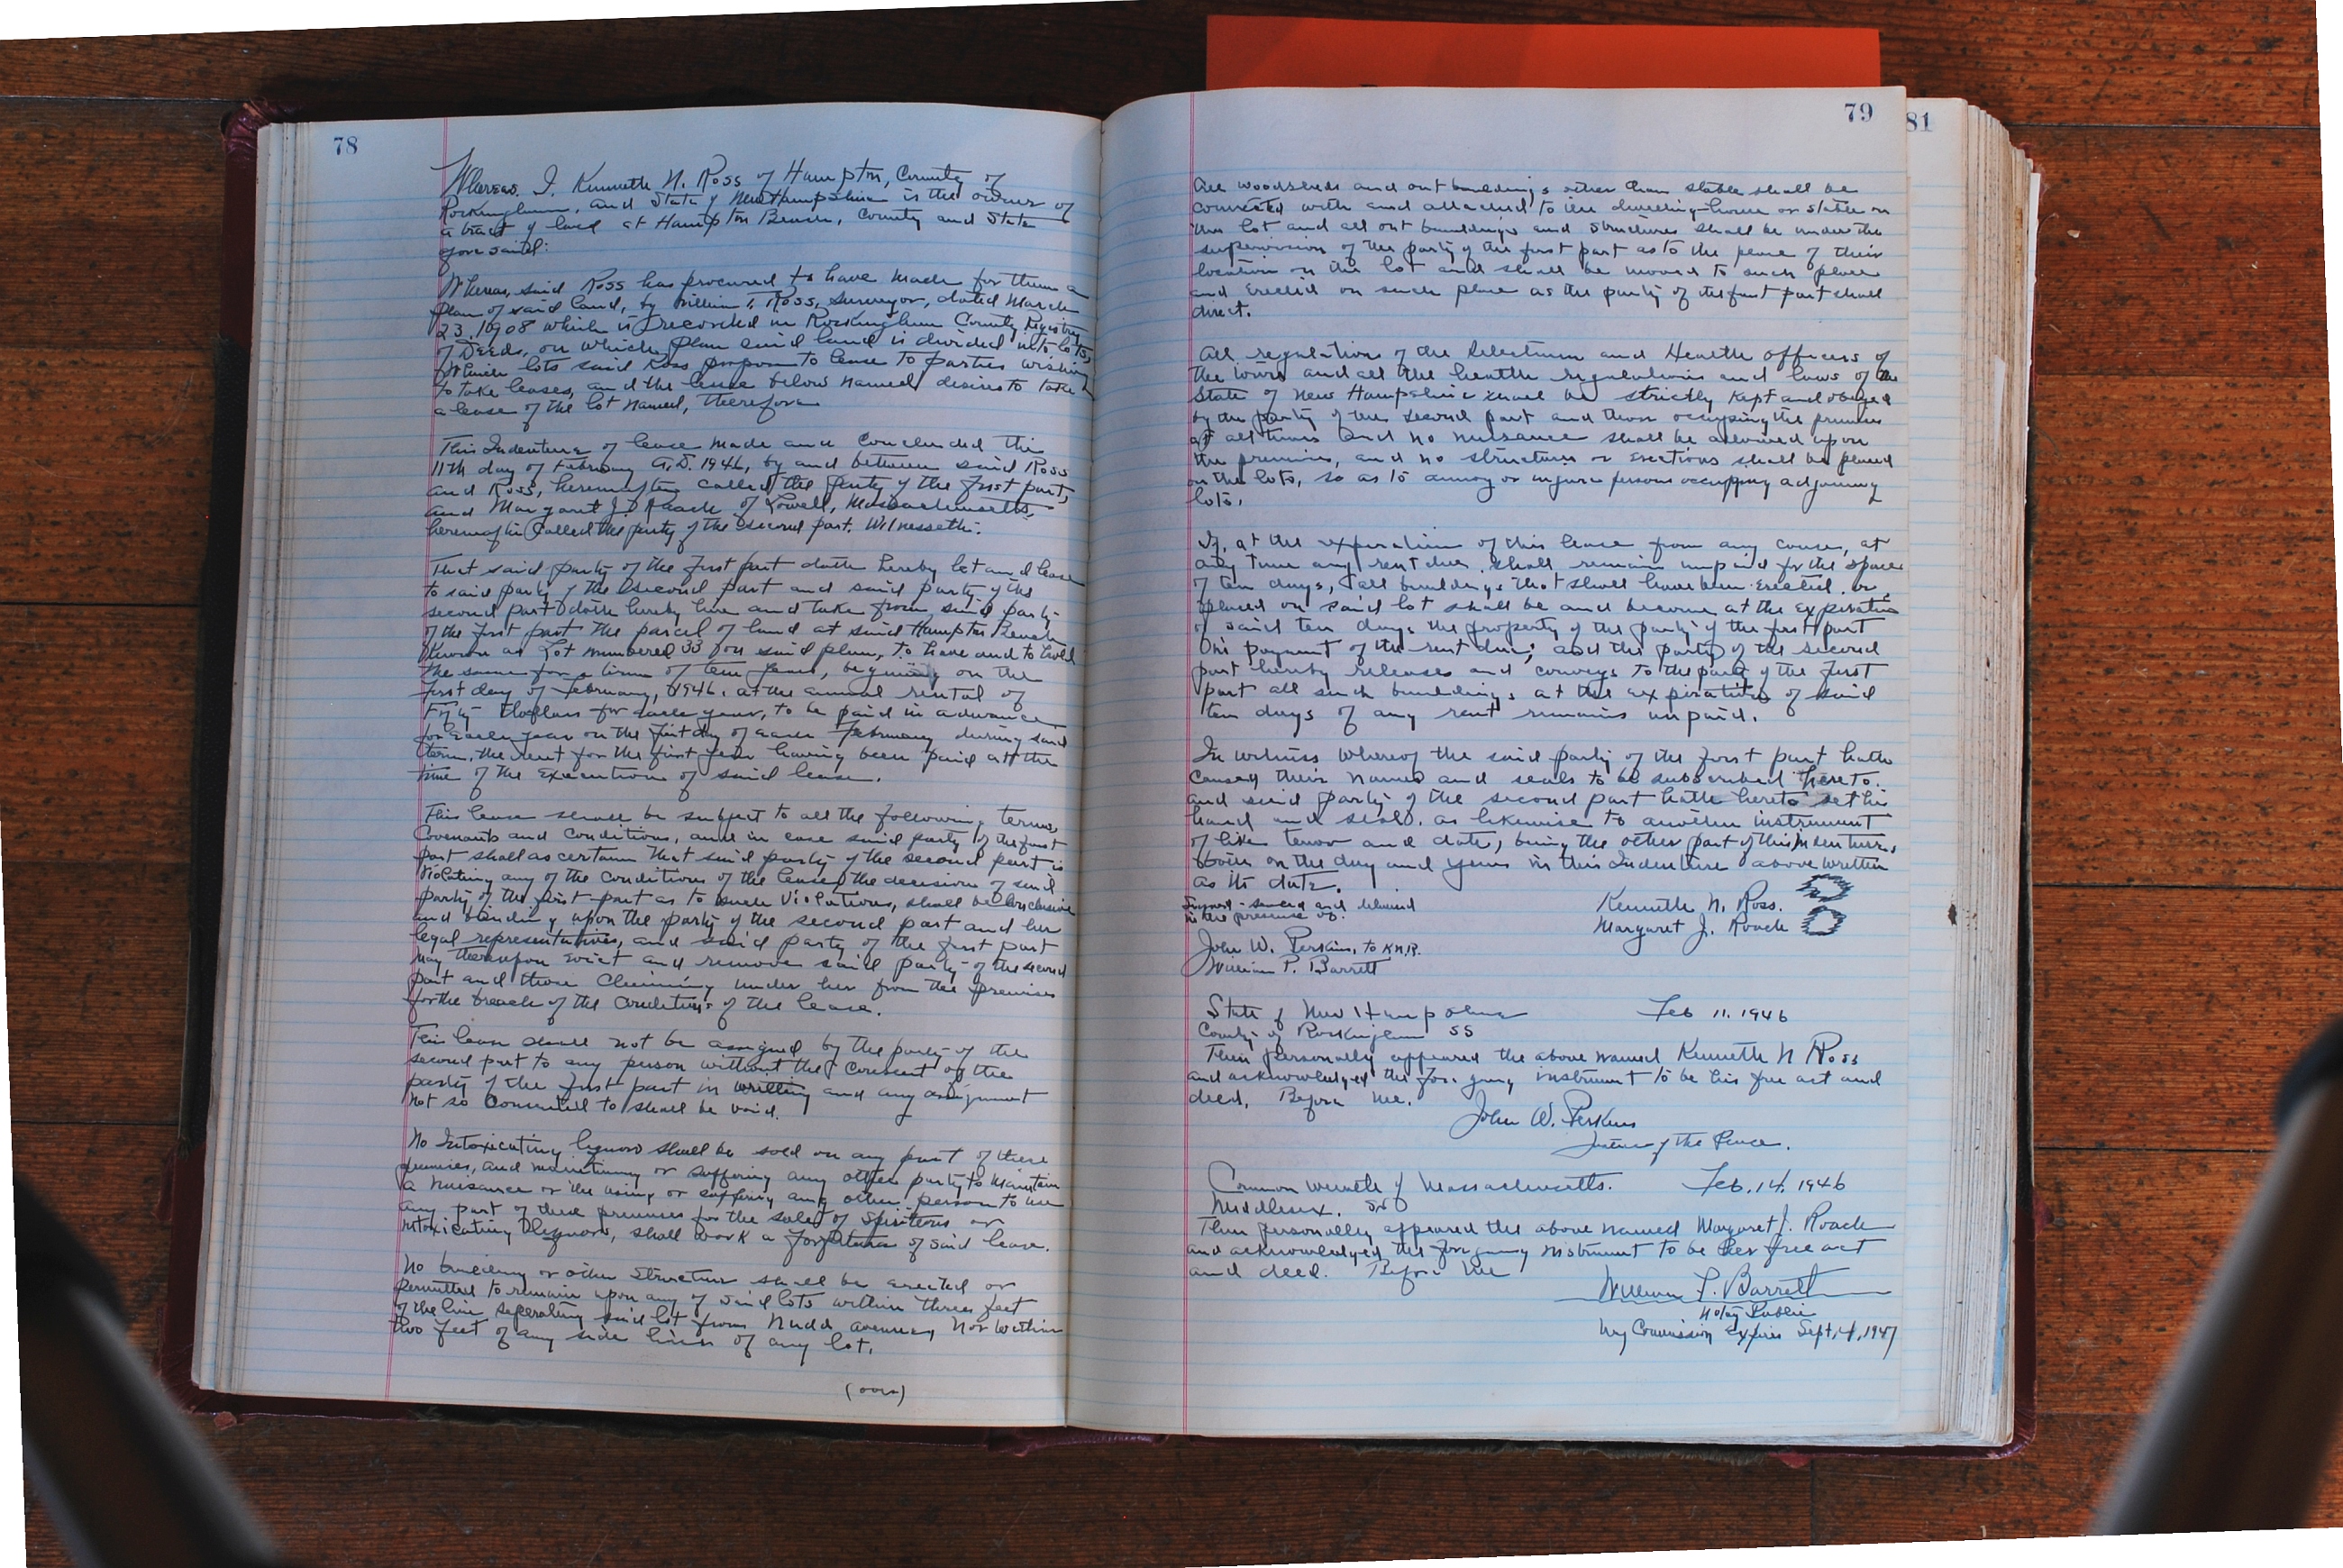 78
Whereas. I. Kenneth N. Ross of Hampton, County of
Rockingham, and State of New Hampshire is the owner of
a tract of land at Hampton Beach, County and State
afore said:
Whereas, said Ross has procured to have made for them a
plan of said land, by William T. Ross, surveyor, dated March
23, 1908 which is recorded in Rockingham County Registry
of Deeds, on which plan said land is divided into lots,
Which lots said Ross propose to lease to parties wishing
to take leases, and the lessee below named desires to take
a lease of the lot named, therefore
This Indenture of lease made and concluded this
11th day of February A.D. 1946, by and between said Ross
and Ross, hereinafter called the party of the first part,
and Margaret J. Roach of Lowell, Massachusetts,
hereinafter called the party of the second part. Witnesseth:
That said party of the first part doth hereby let and lease
to said party of the second part and said party of the
second part doth hereby hire and take from said party
of the first part the parcel of land at said Hampton Beach
known as Lot numbered 33 on said plan, to have and to hold
the same for a term of ten years, beginning on the
first day of February, 1946, at the annual rental of
Fifty Dollars for each year, to be paid in advance
for each year on the first day of each February during said
term, the rent for the first year having been paid at the
time of the execution of said lease.
This lease shall be subject to all the following terms,
Covenants and conditions, and in case said party of the first
part shall ascertain that said party of the second part is
violating any of the conditions of the lease, the decision of said
party of the first part as to such violations, shall be conclusive
and binding upon the party of the second part and her
legal representatives, and said party of the first part
may thereupon evict and remove said party of the second
part and those claiming under her from the premises
for the breach of the conditions of the lease.
This lease shall not be assigned by the party of the
second part to any person without the consent of the
party of the first part in writing and any assignment
not so consented to shall be void.
No Intoxicating liquors shall be sold on any part of these
premises, and maintaining or suffering any other party to maintain
a nuisance or the using or suffering any other person to use
any part of these premises for the sale of spiritous or
intoxicating liquors, shall work a forfeiture of said lease.
No building or other structure shall be erected or
permitted to remain upon any of said lots within three feet
of the line seperating said lot from Nudd Avenue, nor within
two feet of any side lines of any lot.
(over)
79
All woodsheds and out buildings other than stable shall be
connected with and attached to the dwelling-house or stable on
the lot and all out buildings and structures shall be under the
supervision of the party of the first part as to the place of their
location on the lot and shall be moved to such place
and erected on such place as the party of the first part shall
direct.
All regulation of the Selectmen and Health officers of
the town and all the health regulations and laws of the
State of New Hampshire shall be strictly kept and obeyed
by the party of the second part and those occupying the premises
at all times and no nuisance shall be allowed upon
the premises, and no structures or erections shall be placed
on the lots, so as to annoy or injure persons occupying adjoining
lots.
If, at the expiration of this lease from any cause, at
any time any rent due, shall remain unpaid for the space
of ten days, all buildings that shall have been erected or
placed on said lot shall be and become at the expiration
of said ten days the property of the party of the first part
On payment of the rent due; and the party of the second
part hereby releases and conveys to the party of the first
part all such buildings at the expiration of said
ten days of any rent remains unpaid.
In witness whereof the said party of the first part hath
caused their names and seals to be subscribed hereto.
and said party of the second part hath hereto set his
hand and seal. as likewise to another instrument
of like tenor and date, being the other part of this Indenture,
both on the day and year in this Indenture above written
as its date.
Signed - sealed and delivered
in the presence of:
Kenneth N. Ross.
Margaret J. Roach
John W. Perkins, to K.N.R.
William P. Barrett
State of New Hampshire Feb 11. 1946
County of Rockingham SS
Then personally appeared the above named Kenneth N Ross
and acknowledged the foregoing instrument to be his free act and
deed, Before me.
John W. Perkins
Justice of the Peace.
Common wealth of Massachusetts. Feb. 14. 1946
Middlesex. SS
Then personally appeared the above named Margaret J. Roach
and acknowledged the foregoing instrument to be her free act
and deed. Before me
William P. Barrett
Notary Public
My Commission expires Sept. 4, 1947
81